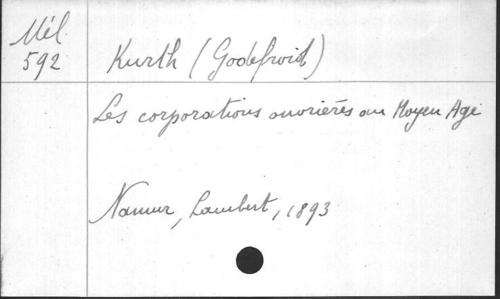 Mél.
592
Kurth (Godefroid)
Les corporations ouvrières au Moyen Age
Namur, Lambert, 1893